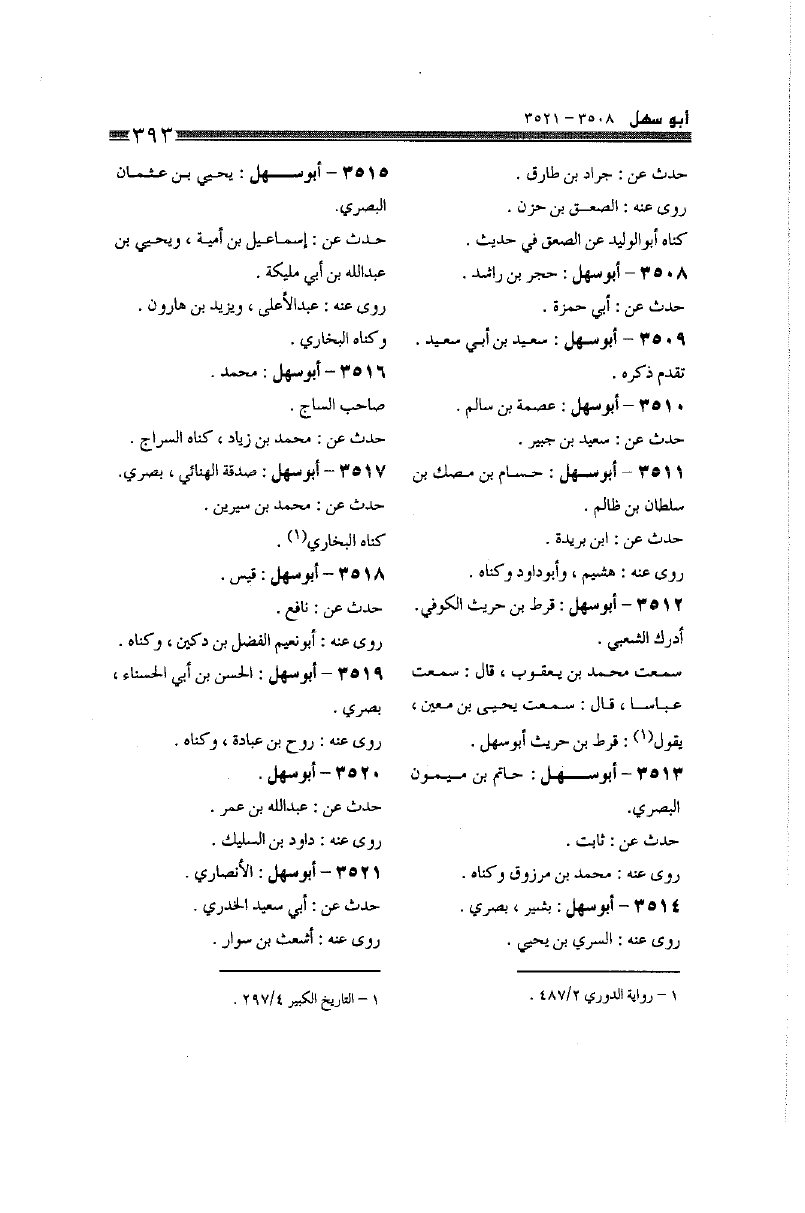 أبو سهل ٣٥٠٨ – ٣٥٢١
٣٩٣
حدث عن : جراد بن طارق .
روى عنه : الصعق بن حزن .
كناه أبوالوليد عن الصعق في حديث .
٣٥٠٨ – أبوسهل : حجر بن راشد .
حدث عن : أبي حمزة .
٣٥٠٩ – أبوسهل : سعيد بن أبي سعيد .
تقدم ذكره .
٣٥١٠ – أبوسهل : عصمة بن سالم .
حدث عن : سعيد بن جبير .
٣٥١١ – أبوسهل : حسام بن مصك بن
سلطان بن ظالم .
حدث عن : ابن بريدة .
روى عنه : هشيم ، وأبوداود وكناه .
٣٥١٢ – أبوسهل : قرط بن حريث الكوفي.
أدرك الشعبي .
سمعت محمد بن يعقوب ، قال : سمعت
عباسا ، قال : سمعت يحيى بن معين ،
يقول(١) : قرط بن حريث أبوسهل .
٣٥١٣ – أبوسهل : حاتم بن ميمون
البصري.
حدث عن : ثابت .
روى عنه : محمد بن مرزوق وكناه .
٣٥١٤ – أبوسهل : بشير ، بصري .
روى عنه : السري بن يحيي .
١ – رواية الدوري ٤٨٧/٢ .
٣٥١٥ – أبوسهل : يحيي بن عثمان
البصري.
حدث عن : إسماعيل بن أمية ، ويحيي بن
عبدالله بن أبي مليكة .
روى عنه : عبدالأعلى ، ويزيد بن هارون .
وكناه البخاري .
٣٥١٦ – أبوسهل : محمد .
صاحب الساج .
حدث عن : محمد بن زياد ، كناه السراج .
٣٥١٧ – أبوسهل : صدقة الهنائي ، بصري.
حدث عن : محمد بن سيرين .
كناه البخاري(١) .
٣٥١٨ – أبوسهل : قيس .
حدث عن : نافع .
روى عنه : أبونعيم الفضل بن دكين ، وكناه .
٣٥١٩ – أبوسهل : الحسن بن أبي الحسناء ،
بصري .
روى عنه : روح بن عبادة ، وكناه .
٣٥٢٠ – أبوسهل .
حدث عن : عبدالله بن عمر .
روى عنه : داود بن السليك .
٣٥٢١ – أبوسهل : الأنصاري .
حدث عن : أبي سعيد الخدري .
روى عنه : أشعث بن سوار .
١ – التاريخ الكبير ٢٩٧/٤ .